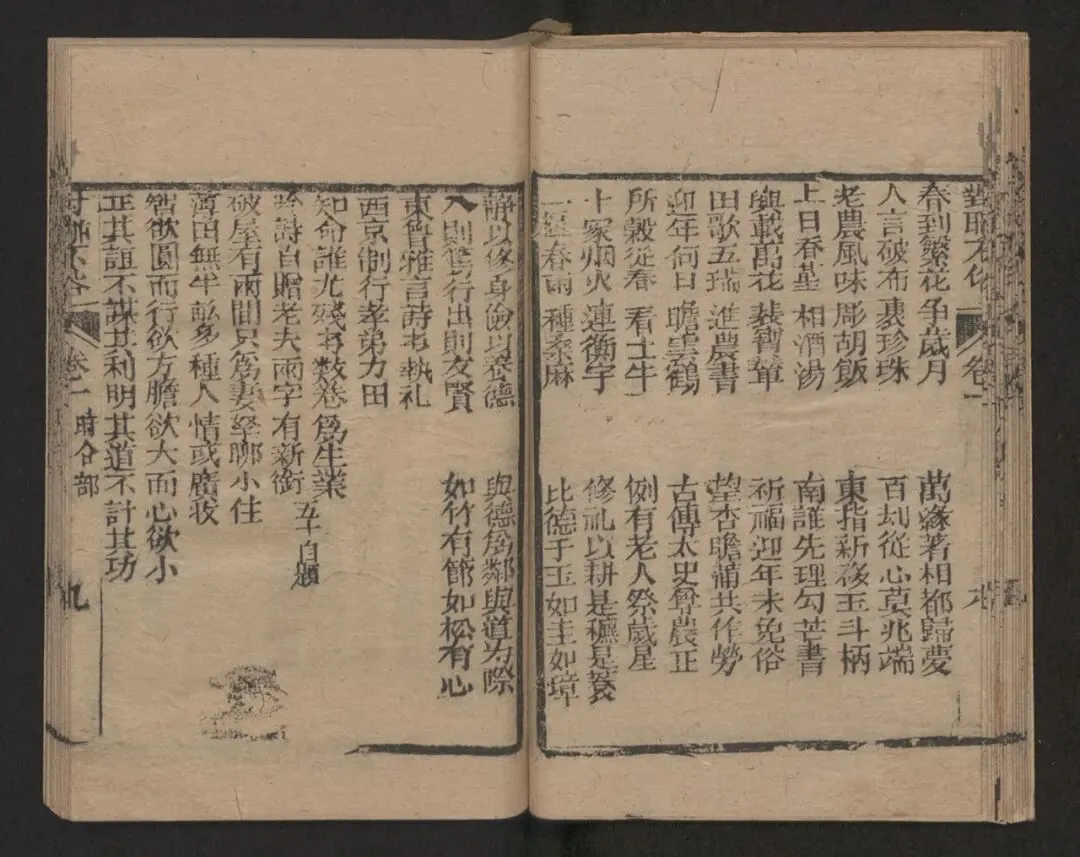 對聯不俗 卷一
春到繁花争歲月 萬緣著相都歸夢
人言破布裹珍珠 百刦從心莫兆端
老農風味彫胡飯 東指新移玉斗柄
上日春臺相酒湯 南誰先理勾芒書
輿載萬花裝寶輦 祈福迎年未免俗
田歌五瑞進農書 望杏瞻蒲共作勞
迎年何日瞻雲鶴 古傳太史尊農正
所穀從春看土牛 例有老人祭歲星
十家烟火連衡宇 修礼以耕是穮是蓘
一犂春雨種桑麻 比德于玉如圭如璋
靜以修身儉以養德 與德為鄰與道为際
入則篤行出則友賢 如竹有節如松有心
東魯雅言詩书執礼
西京制行孝弟力田
知命誰尤殘书数卷爲生業
吟詩自贈老夫兩字有新銜 五十自題
破屋有兩間只爲妻孥聊小住
薄田無半畝多種人情或廣收
智欲圓而行欲方膽欲大而心欲小
正其誼不謀其利明其道不計其功
對聯不俗 卷一 時令部 九